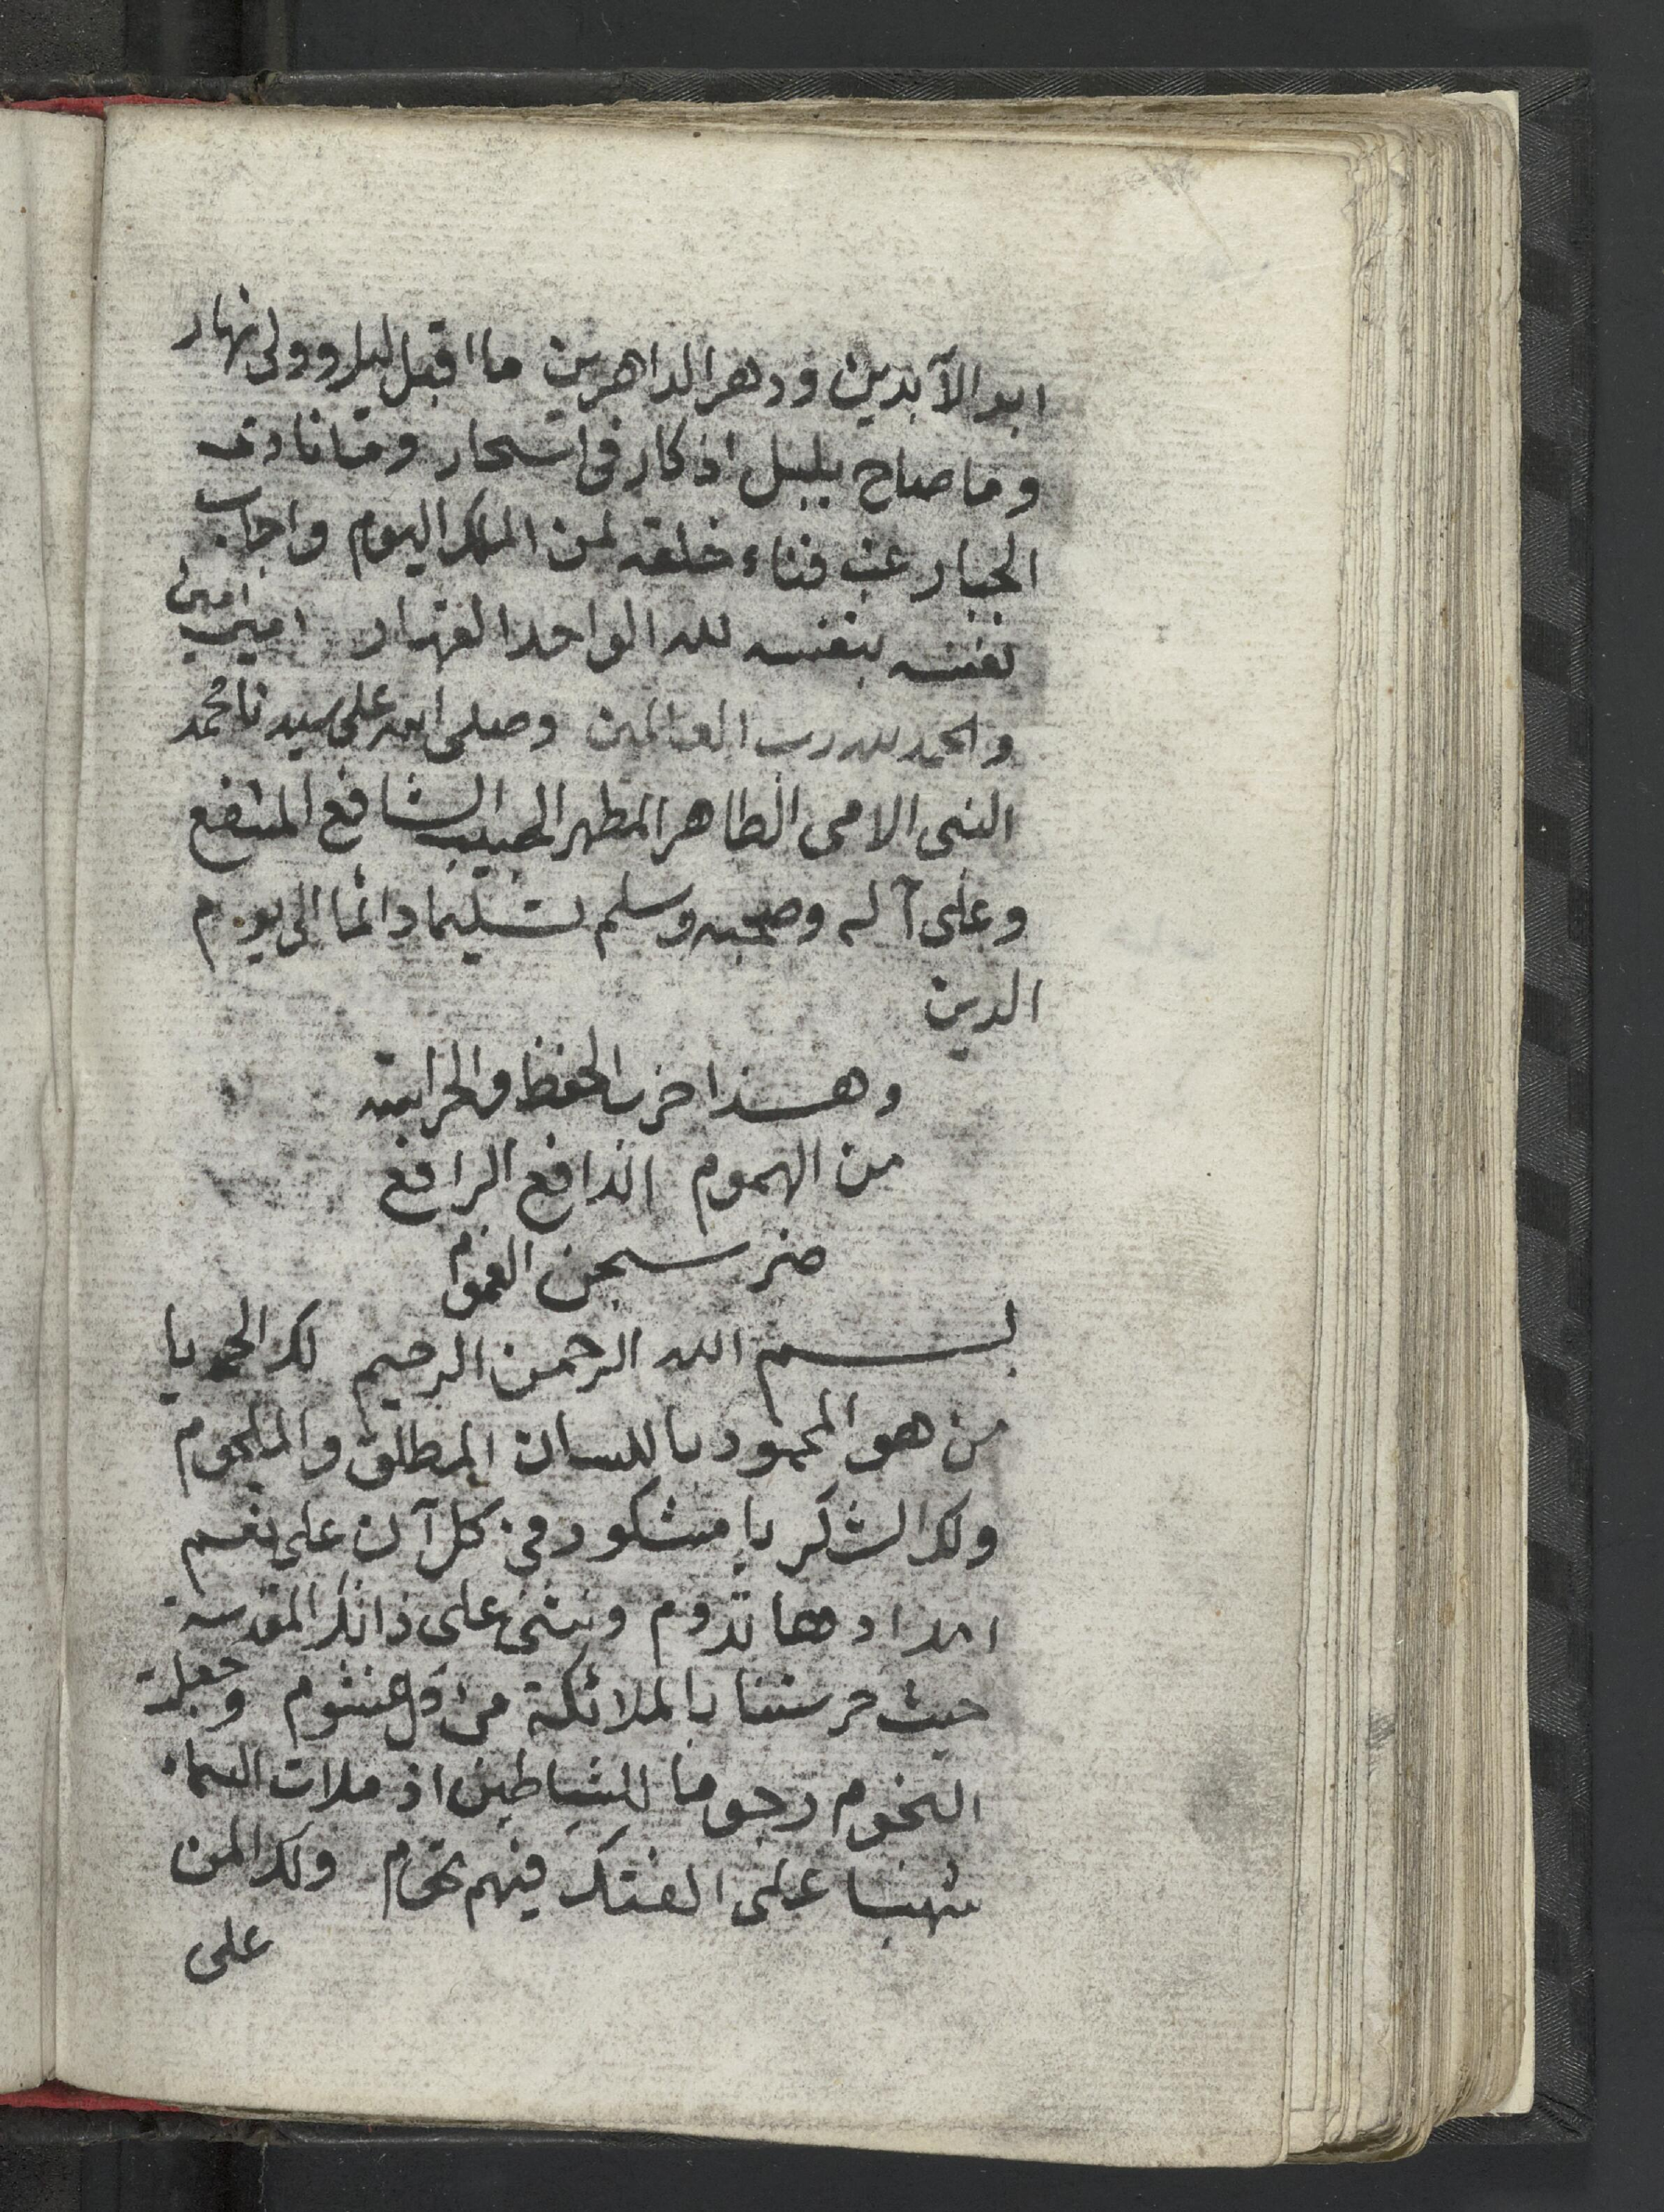 ابد الآبدين ودهر الداهرين ما اقبل ليل وولى نهار
وما صاح بلبل اذكار فى اسحار وما نادى
الجبار عن فناء خلقه لمن الملك اليوم واجاب
نفسه بنفسه لله الواحد القهار امين امين
والحمد لله رب العالمين وصلى الله على سيدنا محمد
النبى الامى الطاهر المطهر الحبيب الشافع المشفع
وعلى آله وصحبه وسلم تسليما دائما الى يوم
الدين
وهذا حزب الحفظ والحراسة
من الهموم الدافع الرافع
ضر سجن الغموم
بسم الله الرحمن الرحيم لك الحمد يا
من هو المحمود باللسان المطلق والملجوم
ولك الشكر يا مشكور فى كل آن على نعم
امدادها تدوم ونثنى على ذاتك المقدسة
حيث حرستنا بالملائكة من كل غشوم وجعلت
النجوم رجوما للشياطين اذ ملات السماء
شهبا على الفتك فيهم تحوم ولك المن
على